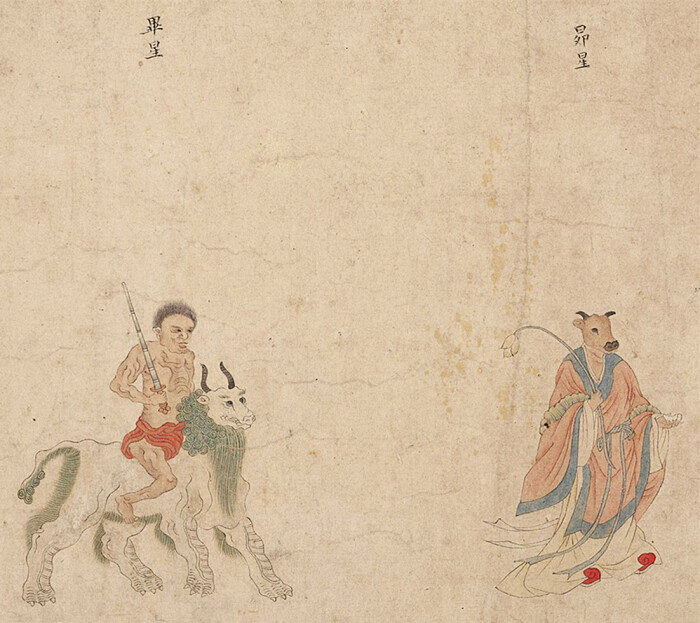 昴星
畢星